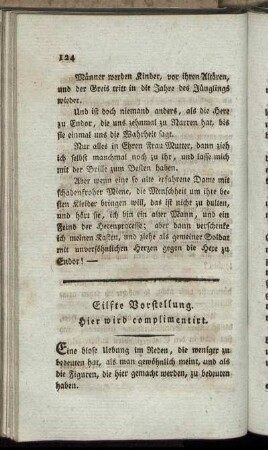 124
Männer werden Kinder, vor ihren Altären,
und der Greis tritt in die Jahre des Jünglings
wieder.
Und ist doch niemand anders, als die Hexe
zu Endor, die uns zehnmal zu Narren hat, bis
sie einmal uns die Wahrheit sagt.
Nur alles in Ehren Frau Mutter, dann zieh
ich selbst manchmal noch zu ihr, und lasse mich
mit der Brille zum Besten haben.
Aber wenn eine so alte erfahrene Dame mit
schadenfroher Miene, die Menschheit um ihre be-
sten Kleider bringen will, das ist nicht zu dulten,
und hört sie, ich bin ein alter Mann, und ein
Feind der Hexenprocesse; aber dann verschenke
ich meinen Kasten, und ziehe als gemeiner Soldat
mit unversöhnlichem Herzen gegen die Hexe zu
Endor! —
Eilfte Vorstellung.
Hier wird complimentirt.
Eine blose Uebung im Reden, die weniger zu
bedeuten hat, als man gewöhnlich meint, und als
die Figuren, die hier gemacht werden, zu bedeuten
haben.